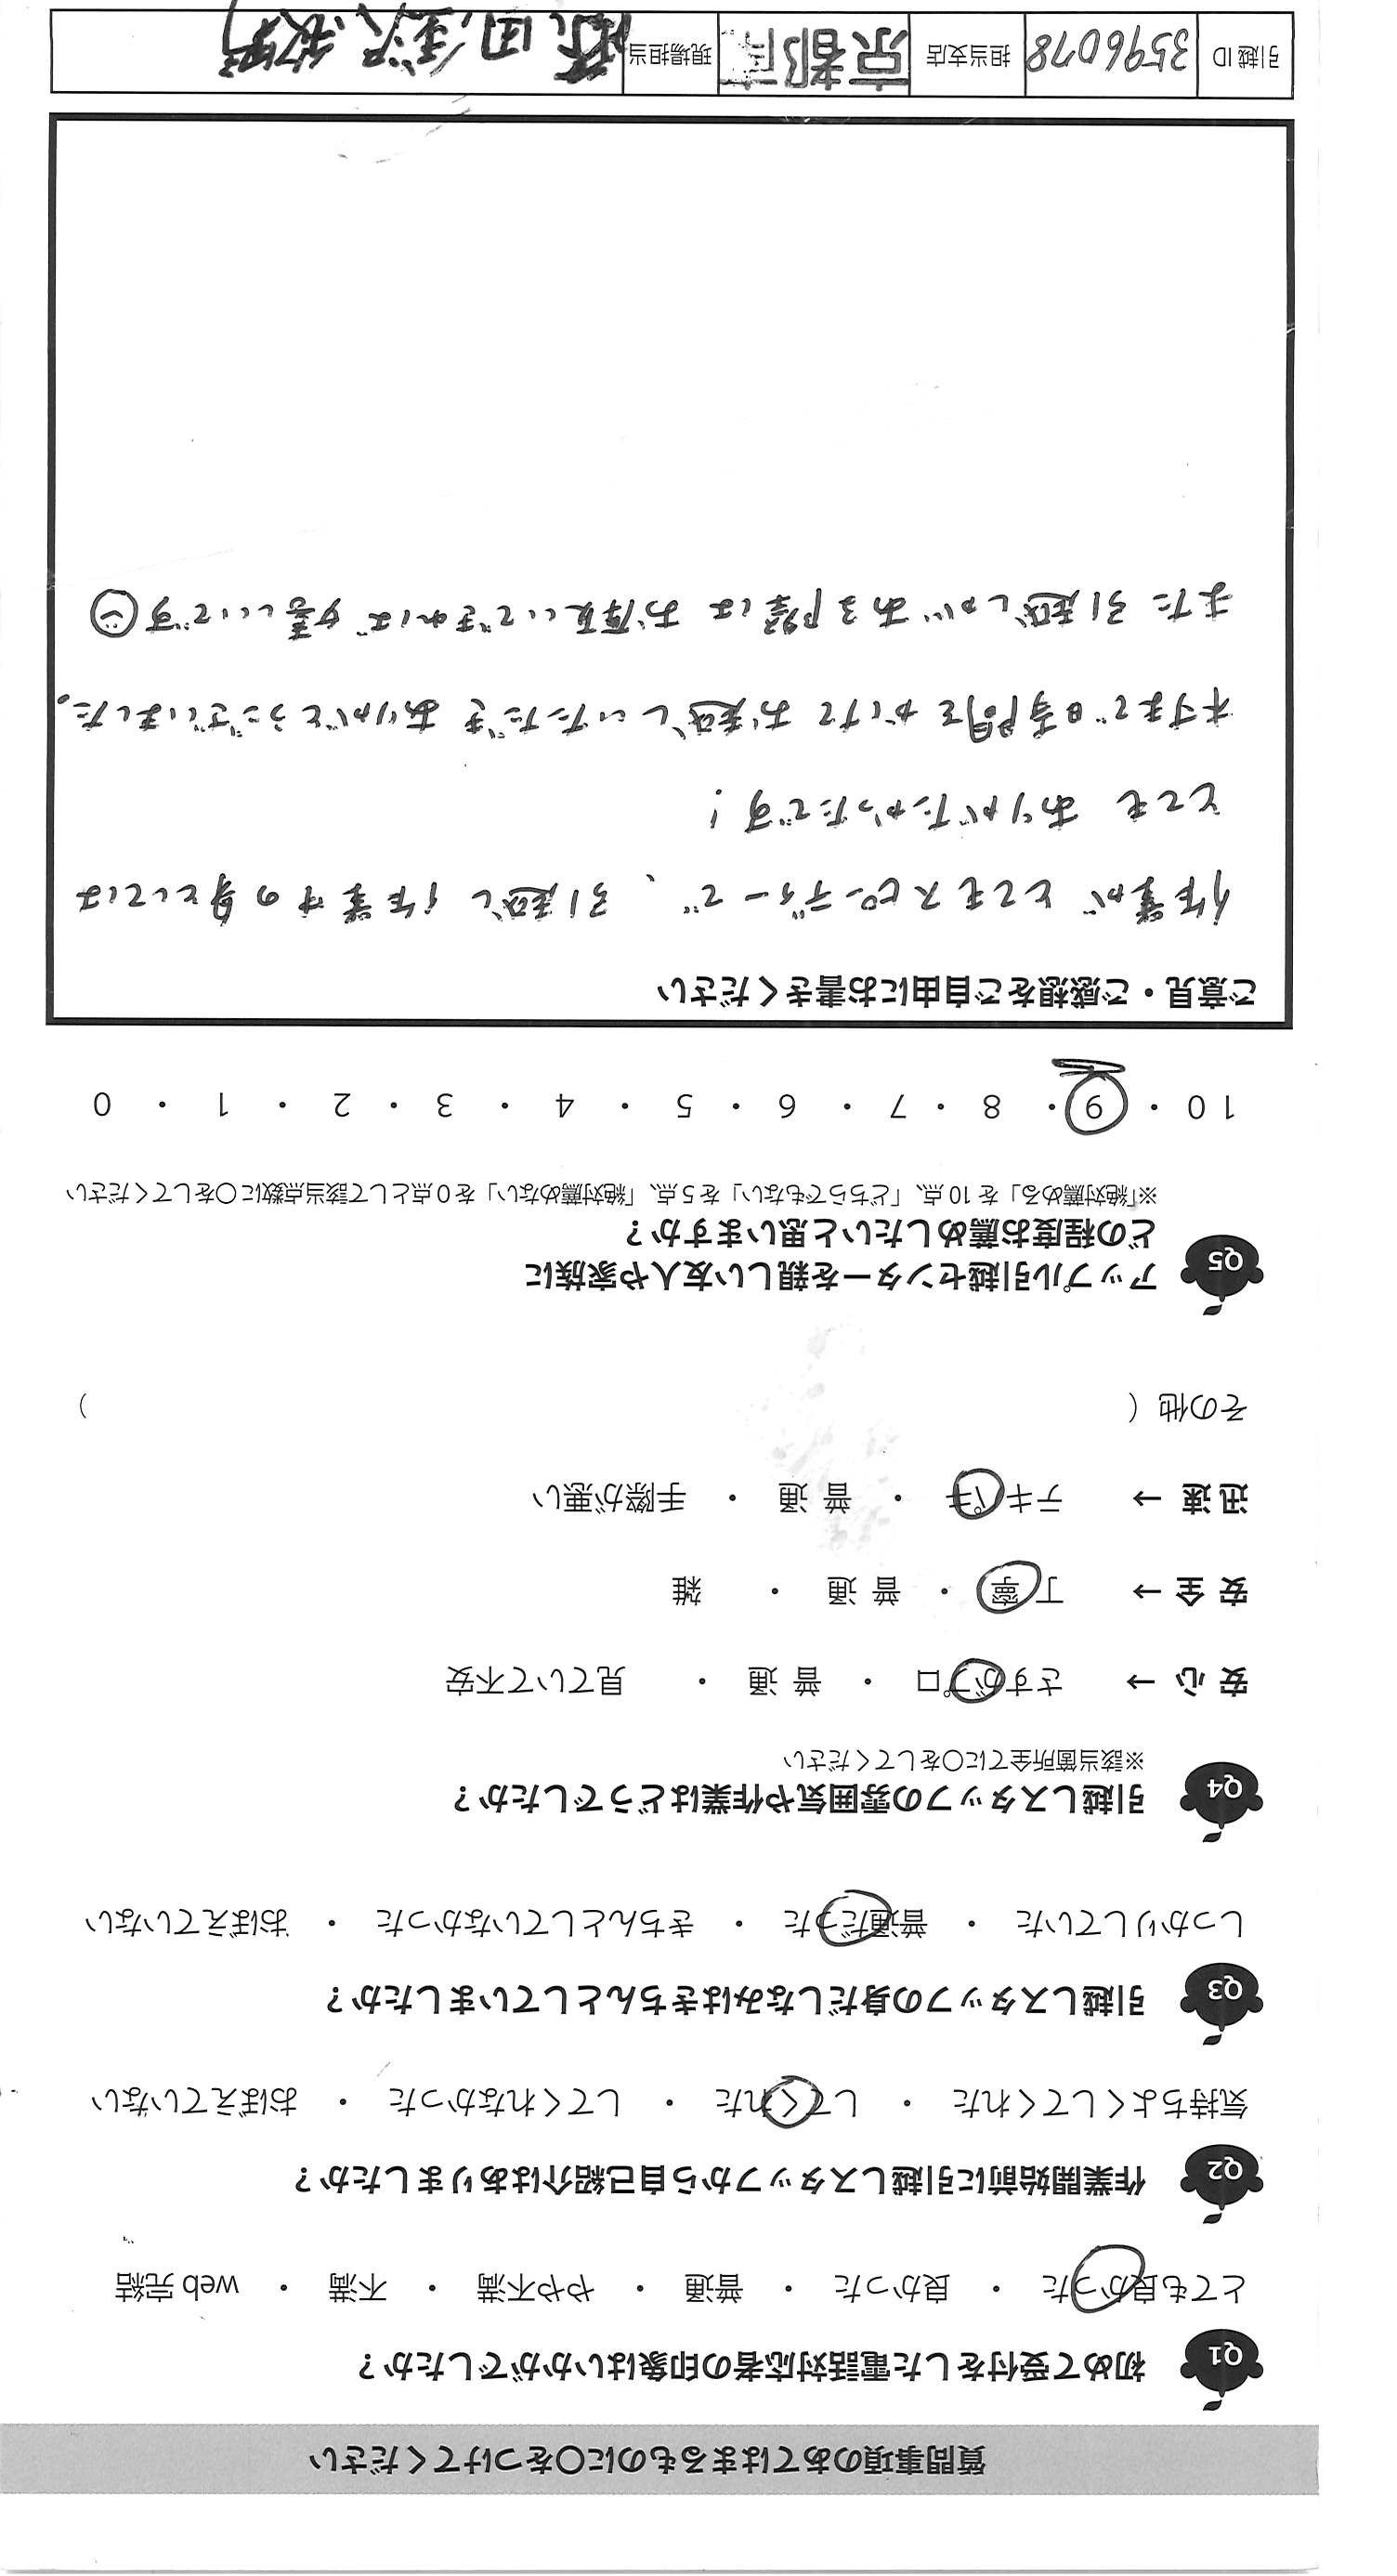 質問事項のあてはまるものに○をつけてください
Q1 初めて受付をした電話対応者の印象はいかがでしたか？
とても良かった ・ 良かった ・ 普通 ・ やや不満 ・ 不満 ・ web 完結
Q2 作業開始前に引越しスタッフから自己紹介はありましたか？
気持ちよくしてくれた ・ してくれた ・ してくれなかった ・ おぼえていない
Q3 引越しスタッフの身だしなみはきちんとしていましたか？
しっかりしていた ・ 普通だった ・ きちんとしていなかった ・ おぼえていない
Q4 引越しスタッフの雰囲気や作業はどうでしたか？
※該当箇所全てに○をしてください
安 心 → さすがプロ ・ 普 通 ・ 見ていて不安
安 全 → 丁 寧 ・ 普 通 ・ 雑
迅 速 → テキパキ ・ 普 通 ・ 手際が悪い
その他（ ）
Q5 アップル引越センターを親しい友人や家族に
どの程度お薦めしたいと思いますか？
※「絶対薦める」を 10 点、「どちらでもない」を 5 点、「絶対薦めない」を 0 点として該当点数に○をしてください
10 ・ 9 ・ 8 ・ 7 ・ 6 ・ 5 ・ 4 ・ 3 ・ 2 ・ 1 ・ 0
ご意見・ご感想をご自由にお書きください
作業が とてもスピーディーで、引越し作業中の身としては
とても ありがたかったです！
ギリまで時間をかけて お越しいただき ありがとうございました。
また引越しがある際は お願いできれば 嬉しいです
引越 ID 3596078 担当支店 京都南 現場担当 金沢、牧野